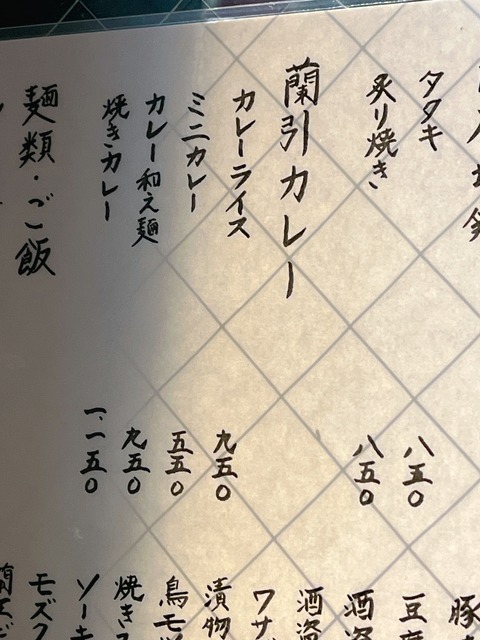 タタキ 八五〇
炙り焼き 八五〇
蘭引カレー
カレーライス 九五〇
ミニカレー 五五〇
カレー和え麺 九五〇
焼きカレー 一、一五〇
麺類・ご飯
豚
酒盗
漬物
鳥モツ
焼き
ソーキ
モズク